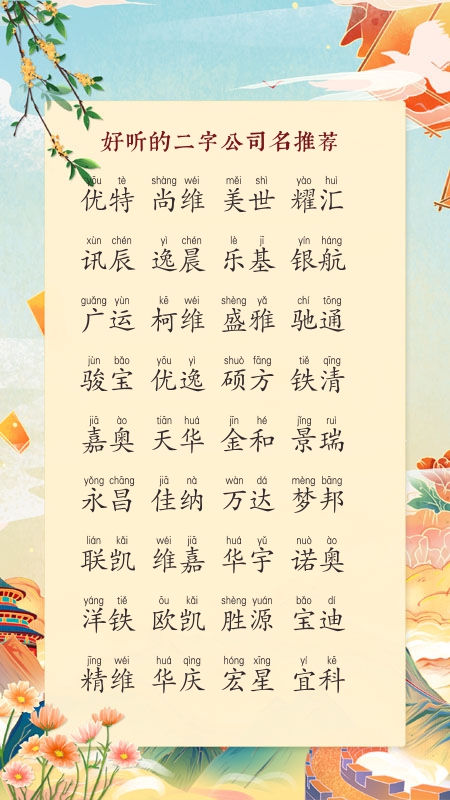 好听的二字公司名推荐
yōu tè shàng wéi měi shì yào huì
优特 尚维 美世 耀汇
xùn chén yì chén lè jī yín háng
讯辰 逸晨 乐基 银航
guǎng yùn kē wéi shèng yǎ chí tōng
广运 柯维 盛雅 驰通
jùn bǎo yōu yì shuò fāng tiě qīng
骏宝 优逸 硕方 铁清
jiā ào tiān huá jīn hé jǐng ruì
嘉奥 天华 金和 景瑞
yǒng chāng jiā nà wàn dá mèng bāng
永昌 佳纳 万达 梦邦
lián kǎi wéi jiā huá yǔ nuò ào
联凯 维嘉 华宇 诺奥
yáng tiě ōu kǎi shèng yuán bǎo dí
洋铁 欧凯 胜源 宝迪
jīng wéi huá qìng hóng xīng yí kē
精维 华庆 宏星 宜科